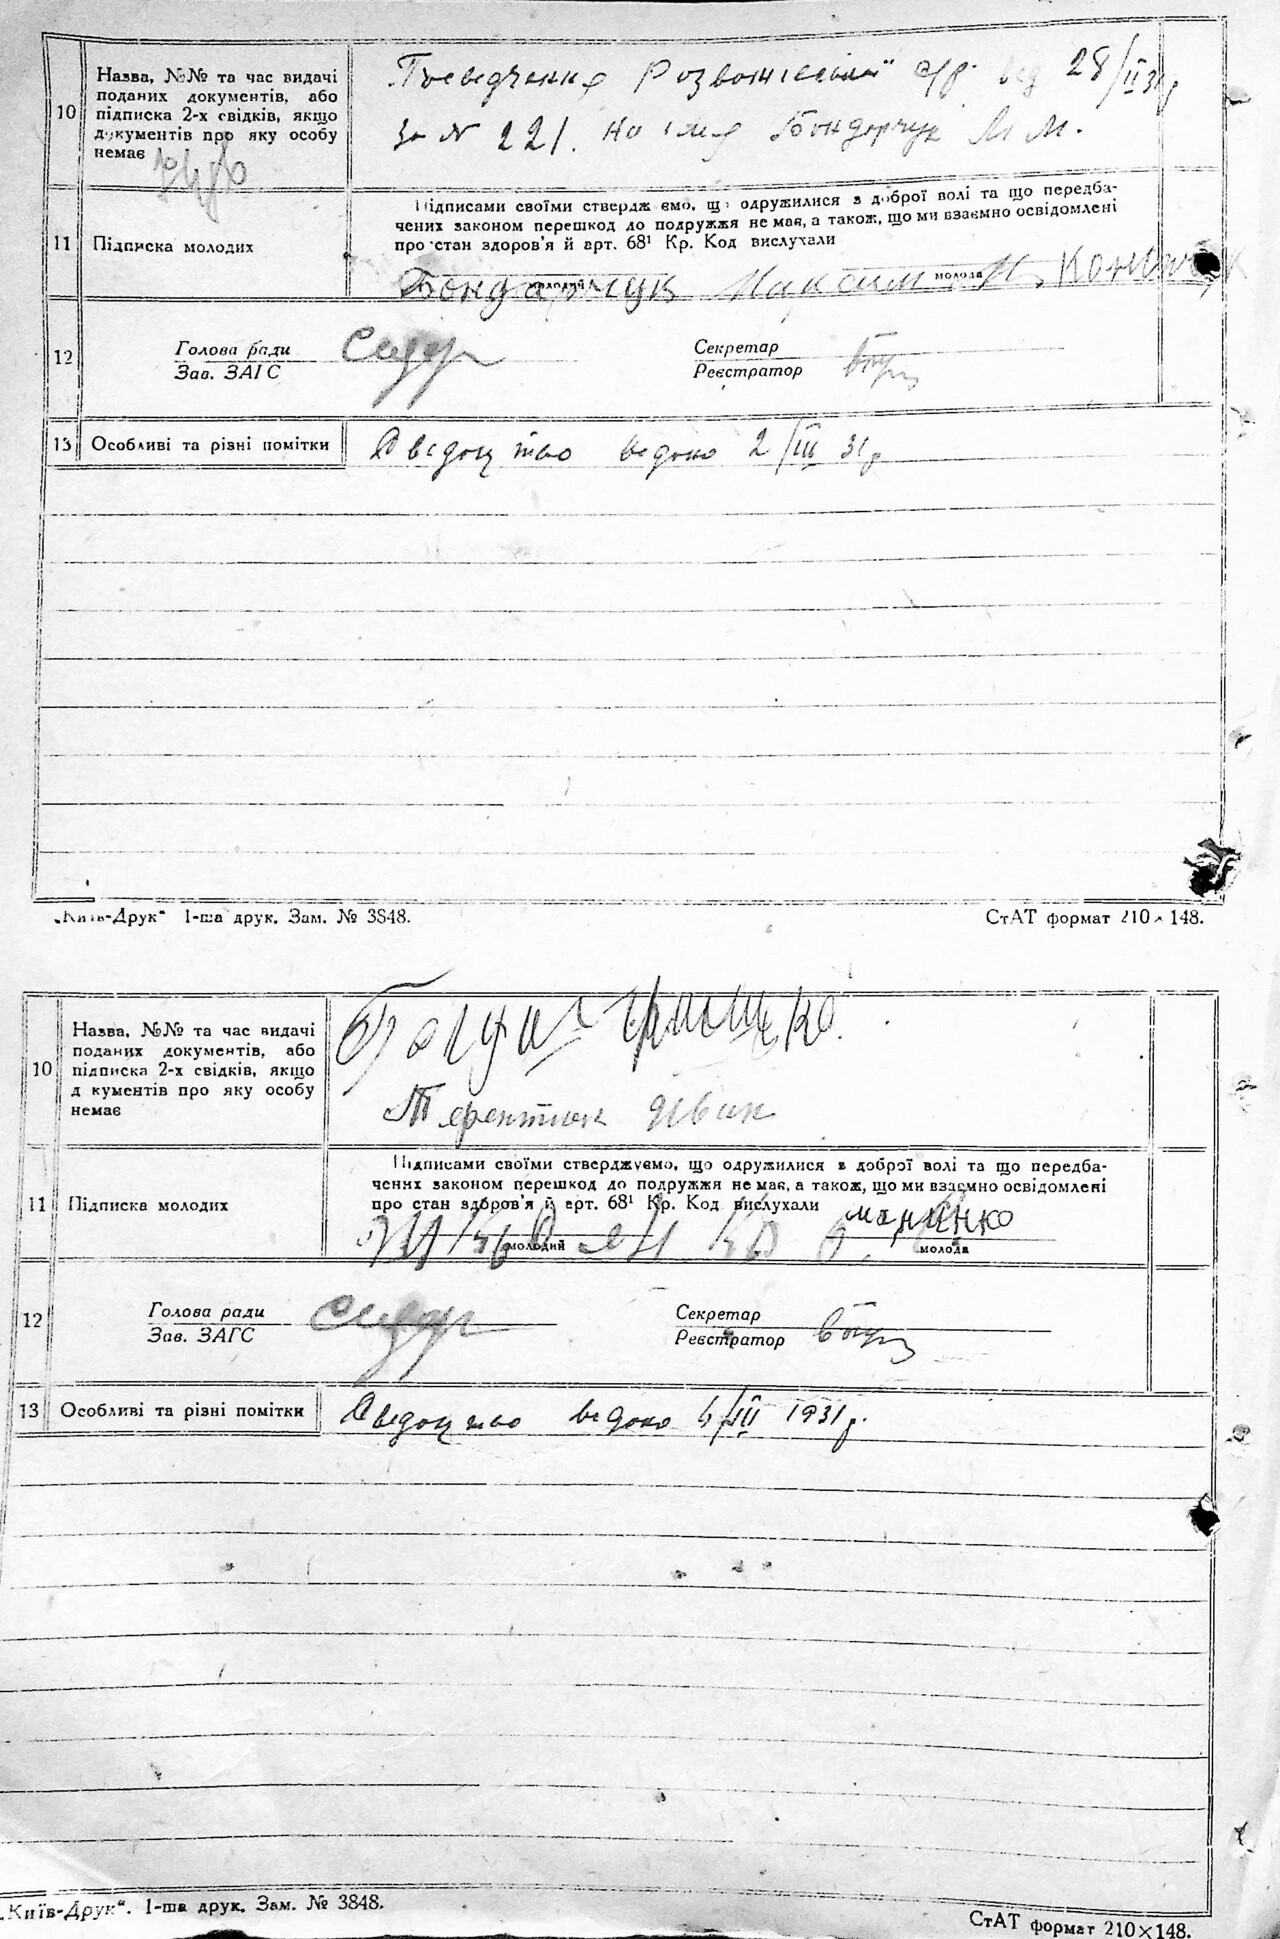 10
Назва, №№ та час видачі
поданих документів, або
підписка 2-х свідків, якщо
документів про яку особу
немає
Посвідчення Розважівської с/р. від 28/II 31р
за N 221. на імя Бондарчук М М.
11
Підписка молодих
Підписами своїми стверджуємо, що одружилися з доброї волі та що передба-
чених законом перешкод до подружжя немає, а також, що ми взаємно освідомлені
про стан здоров'я й арт. 68¹ Кр. Код вислухали
Бондарчук Максим
молодий
молода
12
Голова ради
Зав. ЗАГС
Секретар
Реєстратор
13
Особливі та різні помітки
Свідоцтво видано 2/III 31р
„Київ-Друк“ 1-ша друк. Зам. № 3848.
СтАТ формат 210×148.
10
Назва, №№ та час видачі
поданих документів, або
підписка 2-х свідків, якщо
документів про яку особу
немає
Терентюк Иван
11
Підписка молодих
Підписами своїми стверджуємо, що одружилися з доброї волі та що передба-
чених законом перешкод до подружжя немає, а також, що ми взаємно освідомлені
про стан здоров'я й арт. 68¹ Кр. Код вислухали
молодий
молода
12
Голова ради
Зав. ЗАГС
Секретар
Реєстратор
13
Особливі та різні помітки
Свідоцтво видано 4/III 1931р.
„Київ-Друк“. 1-ша друк. Зам. № 3848.
СтАТ формат 210×148.